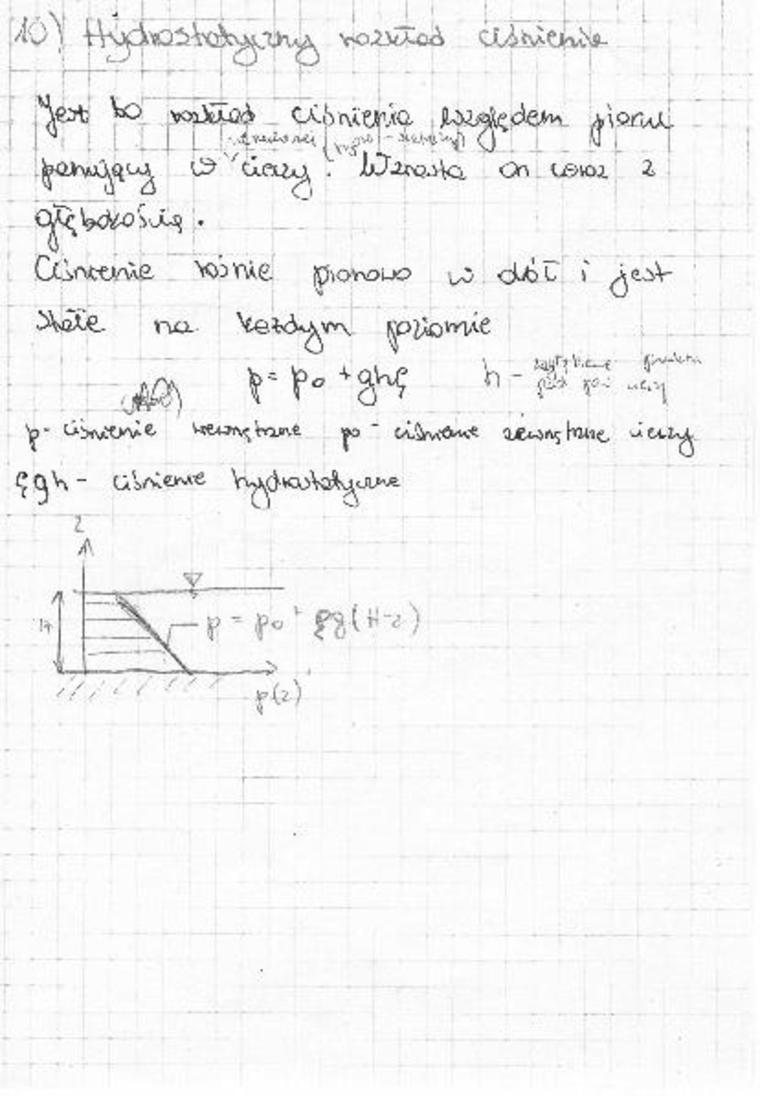 10) Hydrostatyczny rozkład ciśnienia
Jest to rozkład ciśnienia względem pionu
panujący w cieczy. Wzrasta on wraz z
głębokością.
Ciśnienie rośnie pionowo w dół i jest
stałe na każdym poziomie
p = p₀ + ghρ h -
p - ciśnienie wewnętrzne p₀ - ciśnienie zewnętrzne cieczy
ρgh - ciśnienie hydrostatyczne
z
H
p = p₀ + ρg(H-z)
p(z)